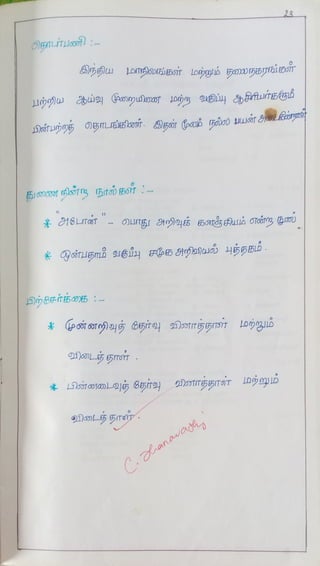 23
தொடர்பணி :-
இந்திய மாநிலங்கள் மற்றும் தலைநகரங்கள்
பற்றிய ஆய்வு முறையினை மற்ற வகுப்பு ஆசிரியர்களும்
பின்பற்றத் தொடங்கினர். இதன் மூலம் நல்ல பயன் அடைகின்றனர்
துணைநின்ற நூல்கள் :-
* "அடோன்" - பொது அறிவுக் களஞ்சியம் என்ற நூல்
* ஒன்பதாம் வகுப்பு சமூக அறிவியல் புத்தகம்.
பிற்சேர்க்கை :-
* முன்னறிவுத் தேர்வு வினாத்தாள் மற்றும்
விடைத்தாள்.
* பின்னடைவுத் தேர்வு வினாத்தாள் மற்றும்
விடைத்தாள்.
C. Dhanavathy